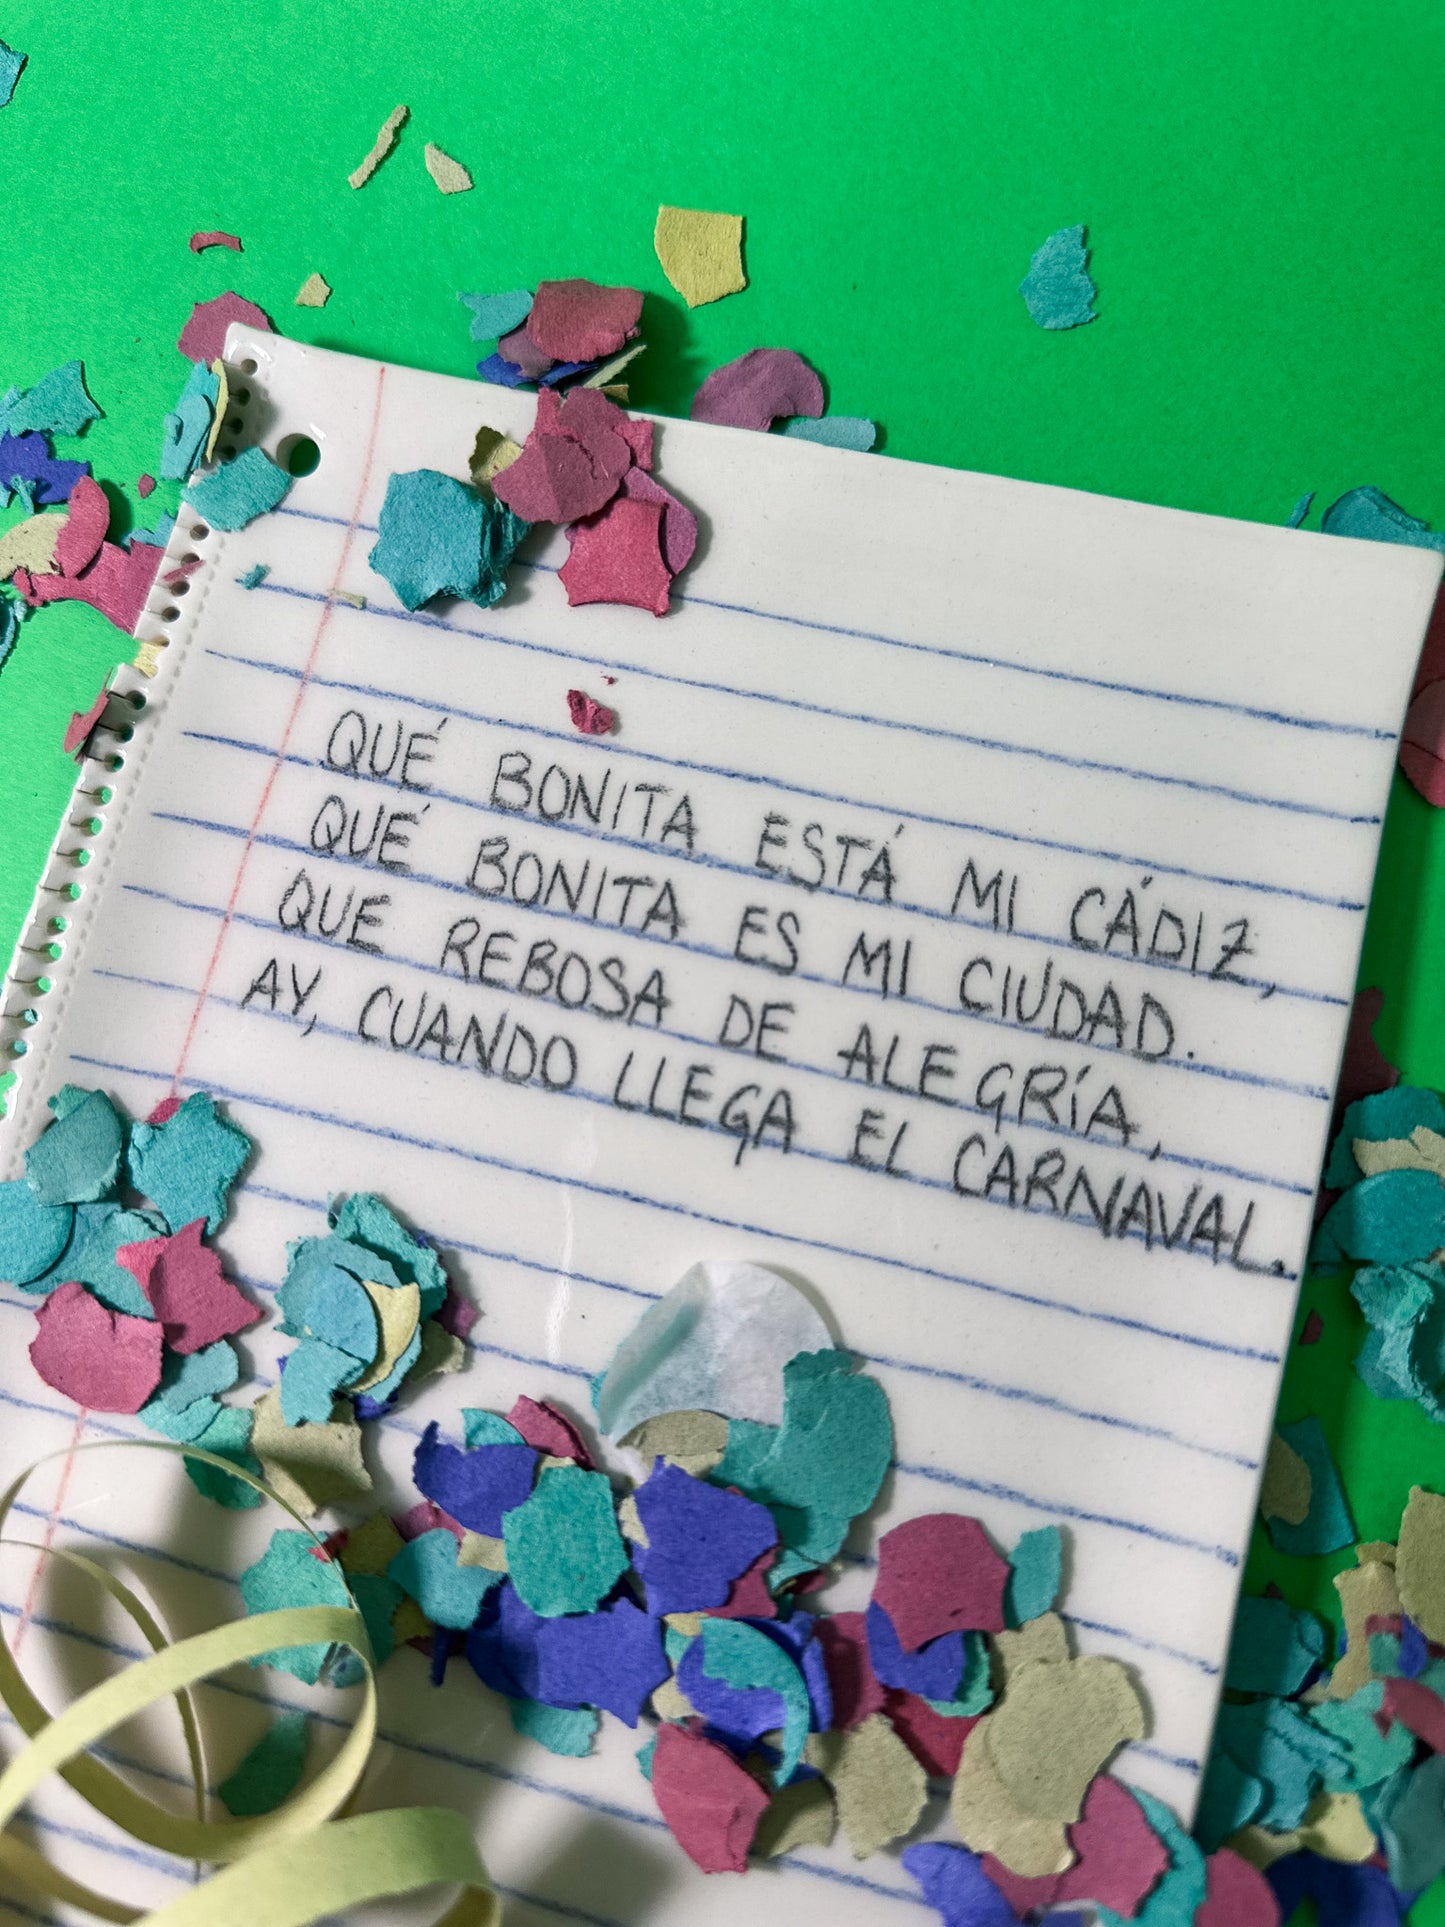 QUÉ BONITA ESTÁ MI CÁDIZ,
QUÉ BONITA ES MI CIUDAD.
QUE REBOSA DE ALEGRÍA,
AY, CUANDO LLEGA EL CARNAVAL.